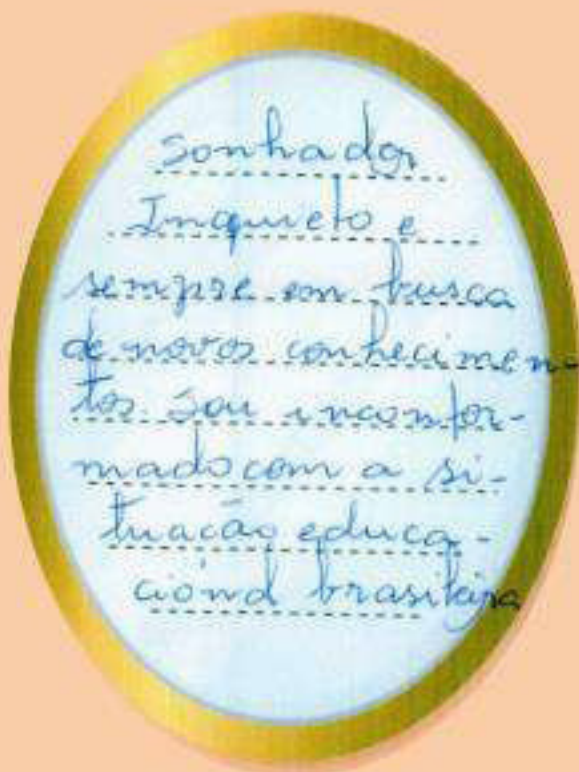 sonhador
Inquieto e
sempre em busca
de novos conhecimen-
tos sou inconfor-
mado com a si-
tuação educa-
cional brasileira